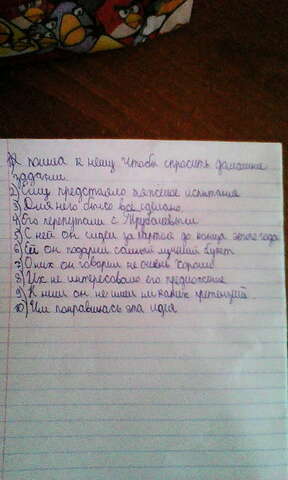 1) Я пошла к нему чтобы спросить домашнее
задание.
2) Ему предстояло тяжелое испытание
3) Для него было все сделано
4) Его перепутали с
5) С ней он сидел за партой до конца этого года
6) Ей он подарил самый лучший букет
7) О них он говорил не очень хорошо
8) Их не интересовало его предложение
9) К ним он не имел никаких претензий
10) Им понравилась эта идея